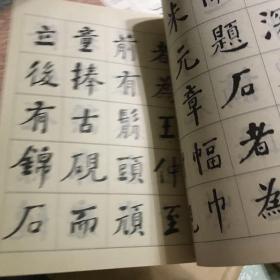 深
題石者為
米元章幅巾
者為王仲至
前有鬅頭頑
童捧古硯而
立後有錦石